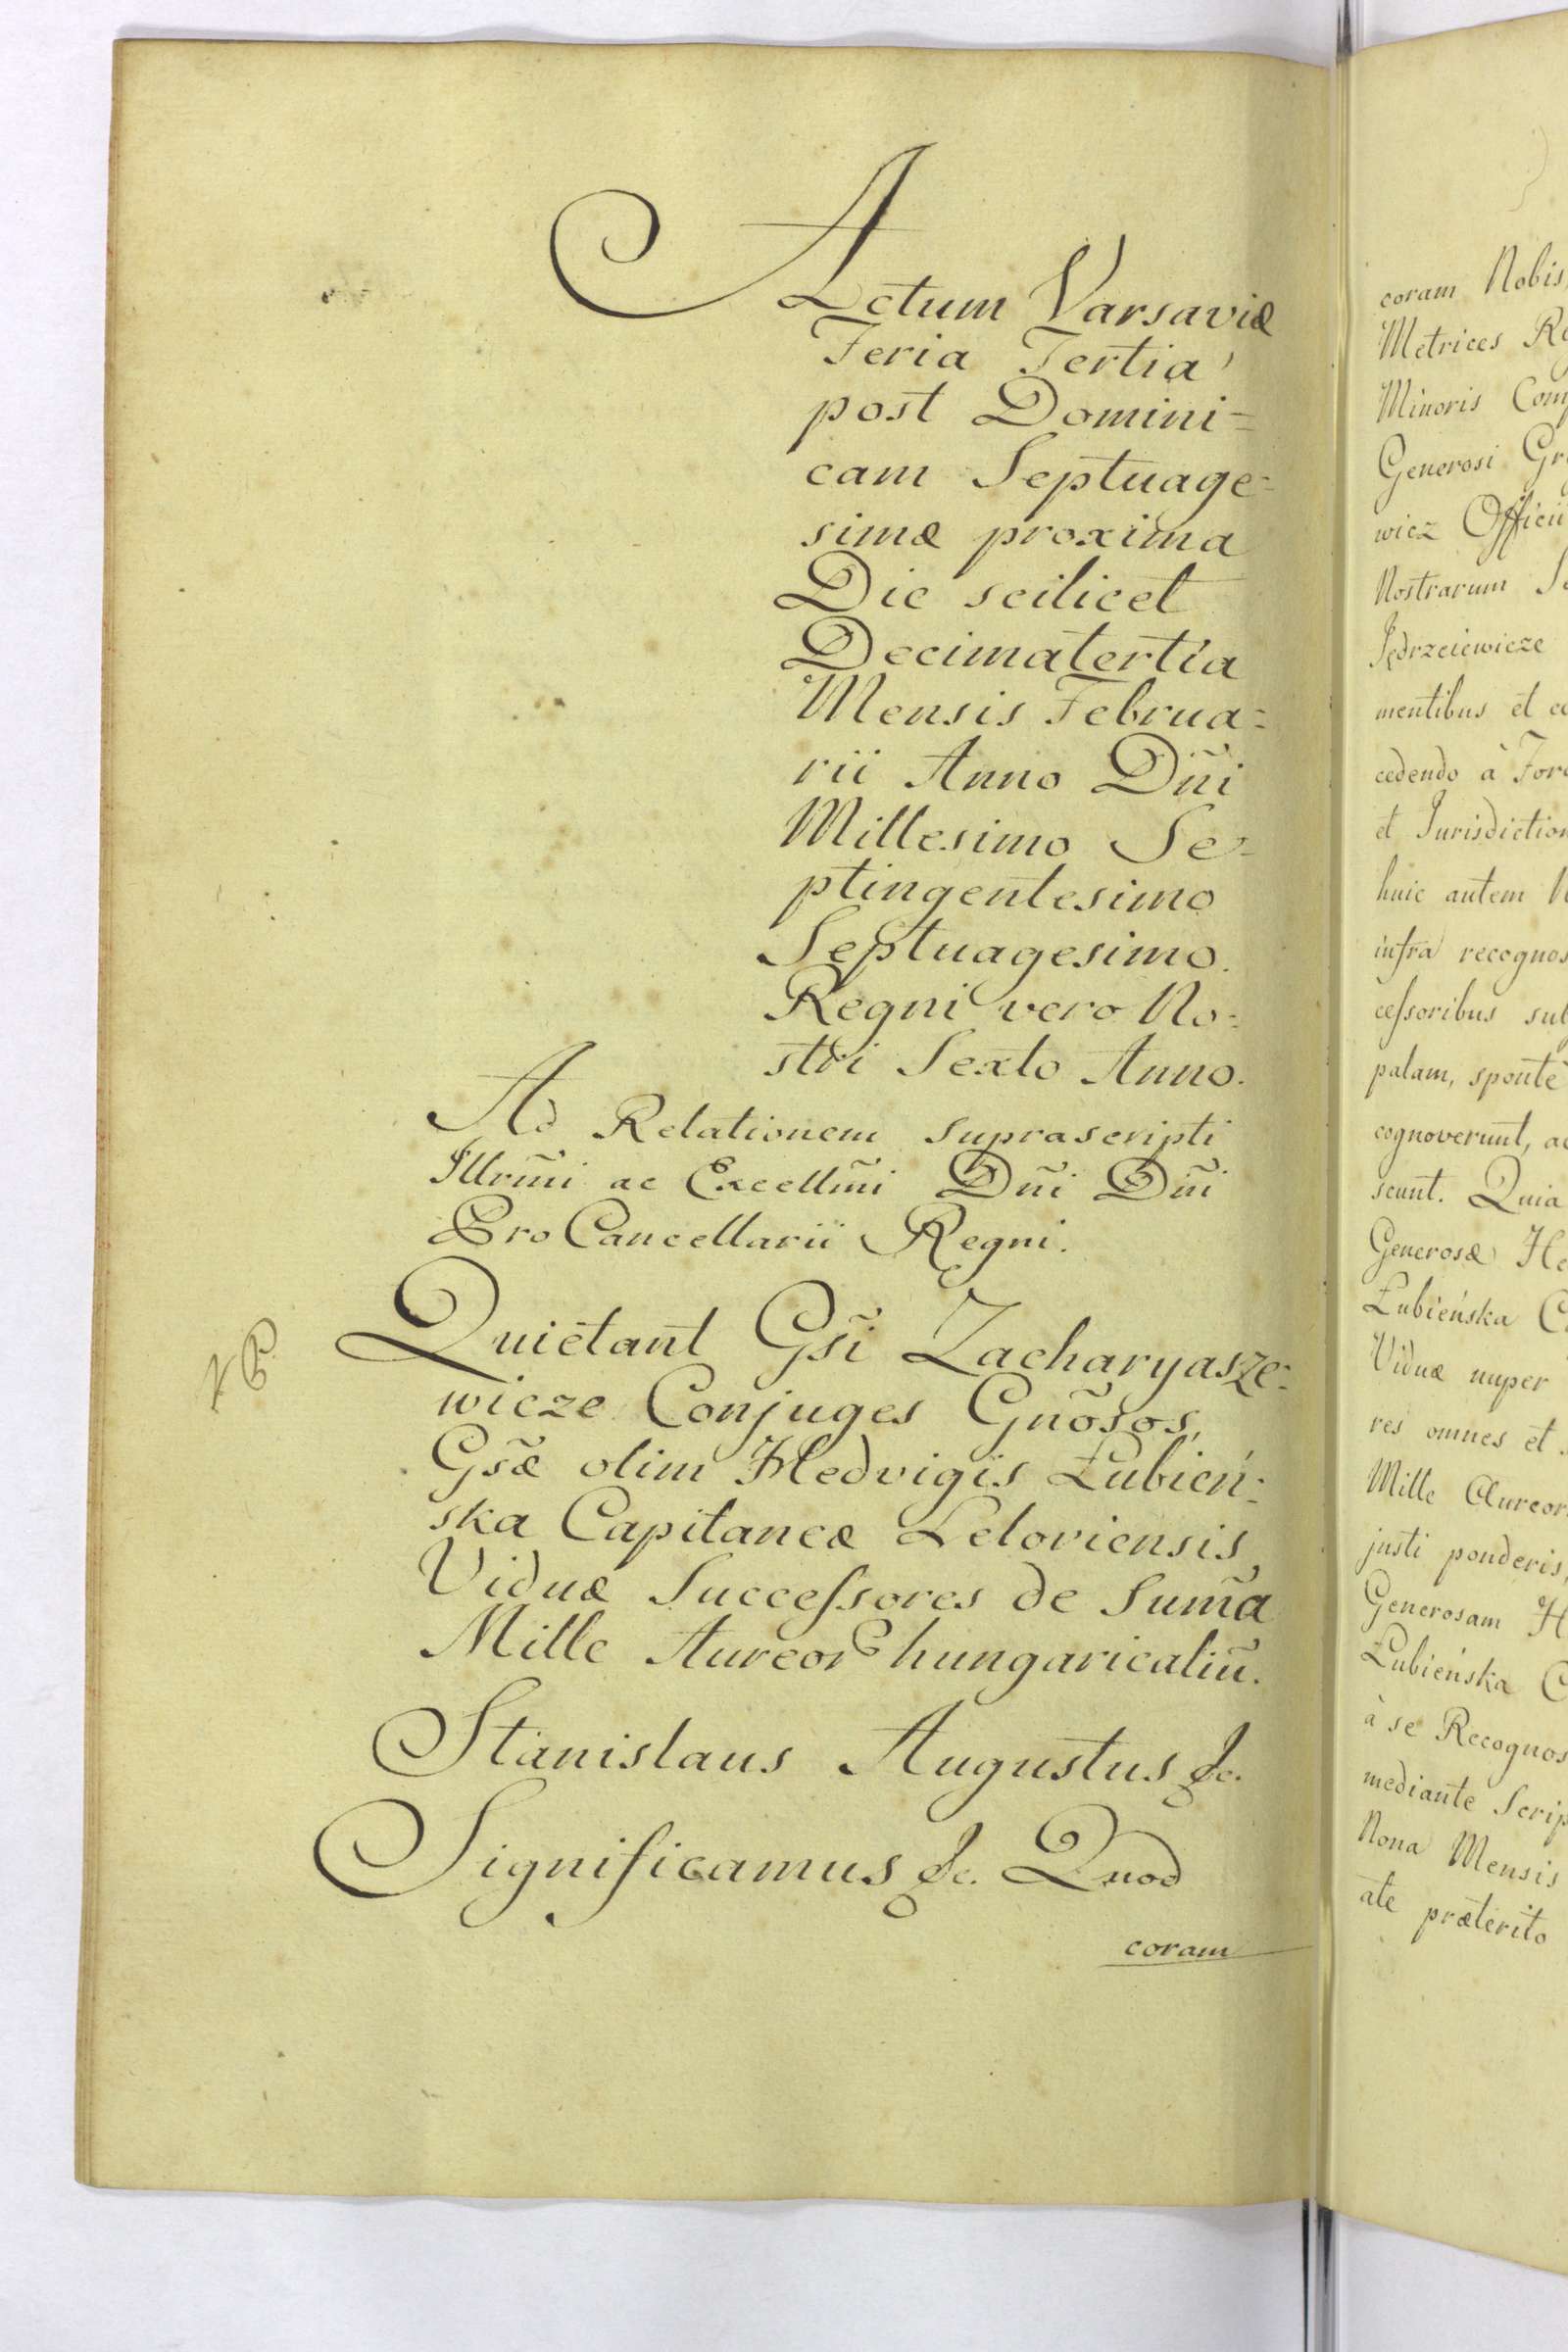 Actum Varsaviæ
Feria Tertia
post Domini=
cam Septuage=
simæ proxima
Die scilicet
Decimatertia
Mensis Februa=
rii Anno Dñi
Millesimo Se=
ptingentesimo
Septuagesimo.
Regni vero No=
stri Sexto Anno.
Ad Relationem suprascripti
Illrm̃i ac Excellm̃i Dñi Dñi
Pro Cancellarii Regni.
Quietant Gsi Zacharyasze=
wicze Conjuges Gnõsos,
Gsæ olim Hedvigis Łubień=
ska Capitaneæ Leloviensis
Viduæ Successores de Sum̃a
Mille Aureor hungaricaliũ.
Stanislaus Augustus &c.
Significamus &c. Quod
coram
coram Nobis
Metrices
Minoris
Generosi
wicz Officii
Nostrarum
Jędrzeiewicze
mentibus et
cedendo à
et
huic autem
infra
cessoribus
palam, sponte
cognoverunt,
scunt. Quia
Generosæ
Łubieńska
Viduæ nuper
res omnes et
Mille
justi ponderis,
Generosam
Łubieńska
à se
mediante
Nona Mensis
ate præterito